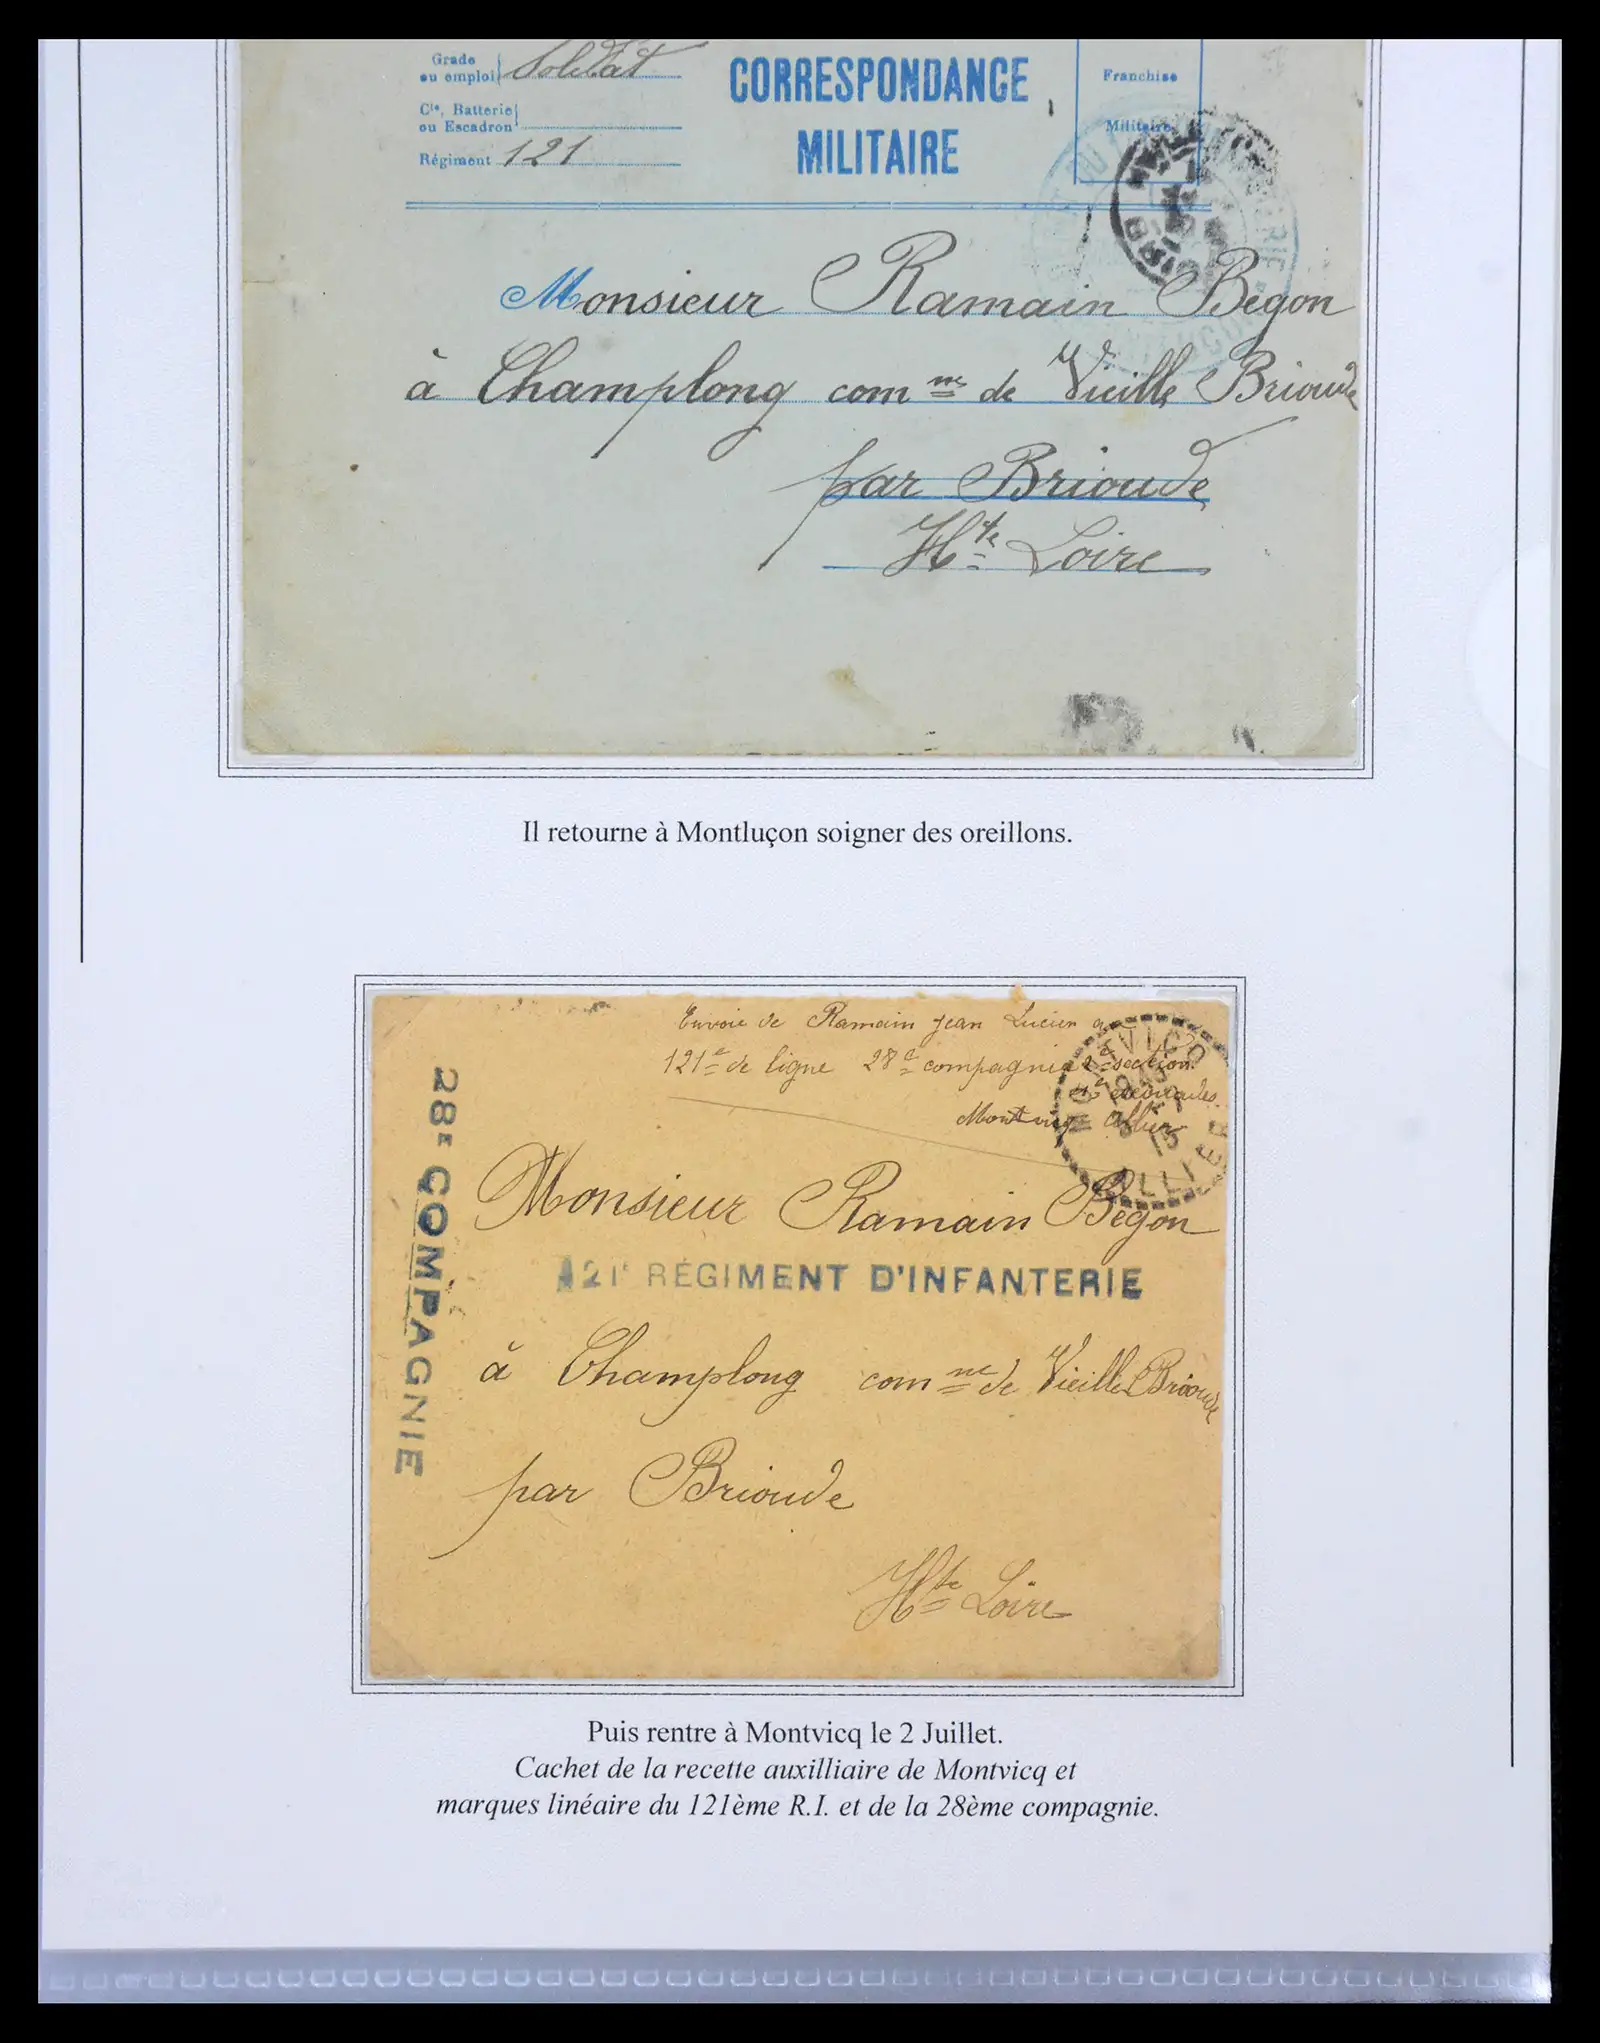 Grade
ou emploi
Soldat
Cie, Batterie
ou Escadron
Régiment 121
CORRESPONDANCE
MILITAIRE
Franchise
Militaire
Monsieur Ramain Begon
à Champlong comne de Vieille Brioude
par Brioude
Hte Loire
Il retourne à Montluçon soigner des oreillons.
Envoie de Ramain Jean Lucien au
121e de ligne 28e compagnie 2e section
Montvicq Allier
MONTVICQ
ALLIER
28E COMPAGNIE
Monsieur Ramain Begon
121E RÉGIMENT D'INFANTERIE
à Champlong comne de Vieille Brioude
par Brioude
Hte Loire
Puis rentre à Montvicq le 2 Juillet.
Cachet de la recette auxilliaire de Montvicq et
marques linéaire du 121ème R.I. et de la 28ème compagnie.